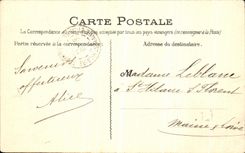 CARTE POSTALE
La Correspondance au recto n'est pas acceptée par tous pays étrangers (se renseigner à la Poste)
Partie réservée à la correspondance
Adresse du destinataire.
Souvenirs
affectueux
Alice
Madame Leblanc
à St Hilaire St Florent
Maine & Loire